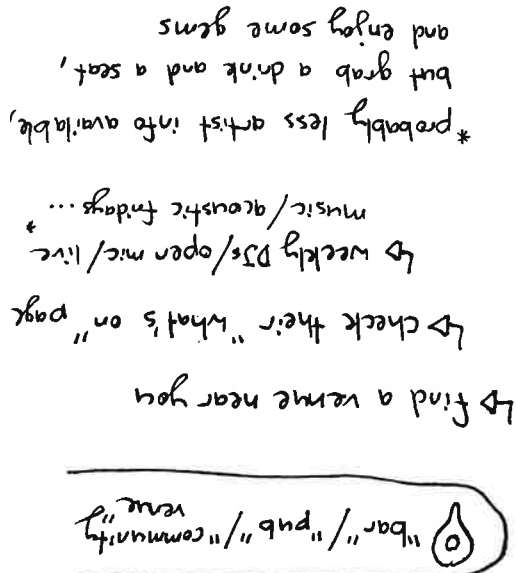 "bar"/"pub"/"community
venue"
↳ find a venue near you
↳ check their "what's on" page
↳ weekly DJs/open mic/live
music/acoustic fridays...*
*probably less artist info available,
but grab a drink and a seat,
and enjoy some gems